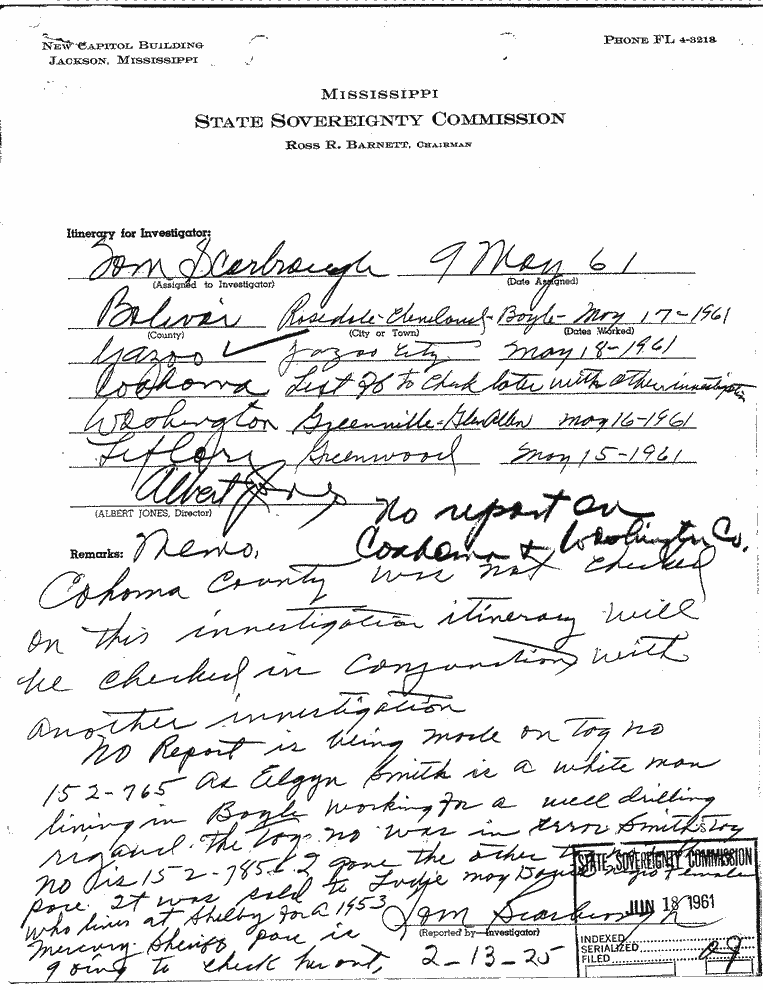 NEW CAPITOL BUILDING
JACKSON, MISSISSIPPI
PHONE FL 4-3218
MISSISSIPPI
STATE SOVEREIGNTY COMMISSION
ROSS R. BARNETT, CHAIRMAN
Itinerary for Investigator:
Tom Scarbrough 9 May 61
(Assigned to Investigator) (Date Assigned)
Bolivar Rosedale-Cleveland-Boyle- May 17-1961
(County) (City or Town) (Dates Worked)
Yazoo ✓ Yazoo City May 18-1961
Coahoma Left off to check later with other investigation
Washington Greenville-Glen Allen May 16-1961
Leflore Greenwood May 15-1961
Albert Jones
(ALBERT JONES, Director)
No report on
Coahoma & Washington Co.
Remarks: Memo.
Cohoma County was not checked
on this investigation itinerary will
be checked in conjunction with
another investigation
No Report is being made on tag no
152-765 as Elgyn Smith is a white man
living in Boyle working for a well drilling
. The tag no was in error Smith's tag
no is 152-785. I gave the other
. It was sold to May Negro Female
who lives at Shelby for a 1953
Mercury. Sheriff is
going to check her out.
Tom Scarbrough
(Reported by—Investigator)
2-13-25
STATE SOVEREIGNTY COMMISSION
JUN 18 1961
INDEXED
SERIALIZED
FILED